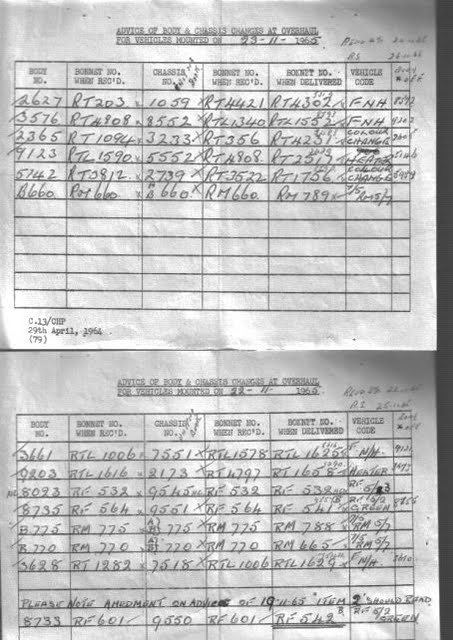 ADVICE OF BODY & CHASSIS CHANGES AT OVERHAUL
FOR VEHICLES MOUNTED ON 23-11- 1965
BODY NO. BONNET NO. WHEN REC'D. CHASSIS NO. BONNET NO. WHEN REC'D. BONNET NO. WHEN DELIVERED VEHICLE CODE
2627 RT203 1059 RT4421 RT4302 F NH
3576 RT4808 8552 RTL1340 RTL1552 F NH
2365 RT1094 3233 RT356 RT4237 COLOUR CHANGE
9123 RTL1590 5552 RT4808 RT2517 HEATER
5142 RT3812 2739 RT3522 RT1756 COLOUR CHANGE
B660 RM660 660 RM660 RM789 7/5 RM5/7
C.13/CHP
29th April, 1964
(79)
ADVICE OF BODY & CHASSIS CHANGES AT OVERHAUL
FOR VEHICLES MOUNTED ON 22-11- 1965
BODY NO. BONNET NO. WHEN REC'D. CHASSIS NO. BONNET NO. WHEN REC'D. BONNET NO. WHEN DELIVERED VEHICLE CODE
3661 RTL1006 7551 RTL1578 RTL1625 F N/H
9203 RTL1616 2173 RT4797 RT1658 HEATER
8023 RF532 9545 RF532 RF532 RF
8735 RF564 9551 RF564 RF541 RF5/2 GREEN
B.775 RM775 775 RM775 RM788 7/5 RM5/7
B.770 RM770 770 RM770 RM665 7/5 RM5/7
3628 RT1282 7518 RTL1006 RTL1629 F N/H
PLEASE NOTE AMDMENT ON ADVICE OF 19-11-65 "ITEM 2" SHOULD READ
8733 RF601 9550 RF601 RF542 RF5/2 GREEN